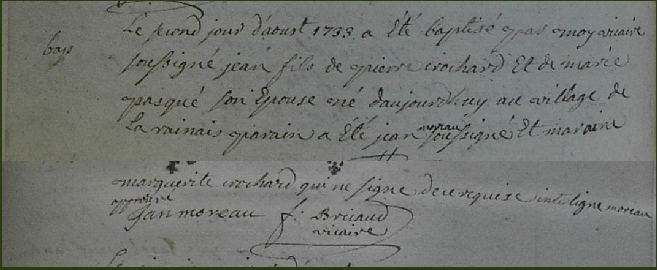 bap
Le second jour d'aoust 1733 a été baptisé par moy vicaire
soussigné jean fils de pierre crochard Et de marie
pasqué son Epouse né d'aujourd'huy au village de
La rainais parain a Eté jean moreau soussigné Et maraine
marguerite crochard qui ne signe de ce requise interligne moreau
approuvé
Jan moreau f: Briaud
vicaire